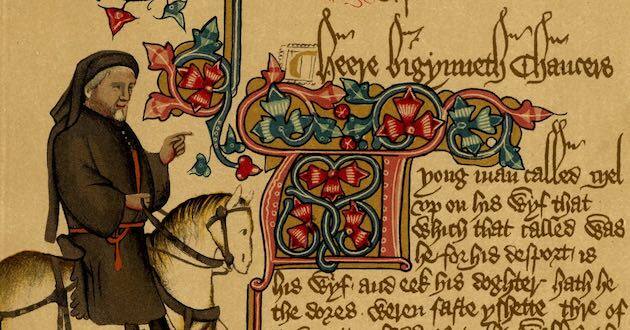 Heere bigynneth Chaucers
A yong man called Mel
vp on his wyf that
which that called was
he for his desport is
his wyf and eek his doghter hath he
the dores weren faste yshette thre of